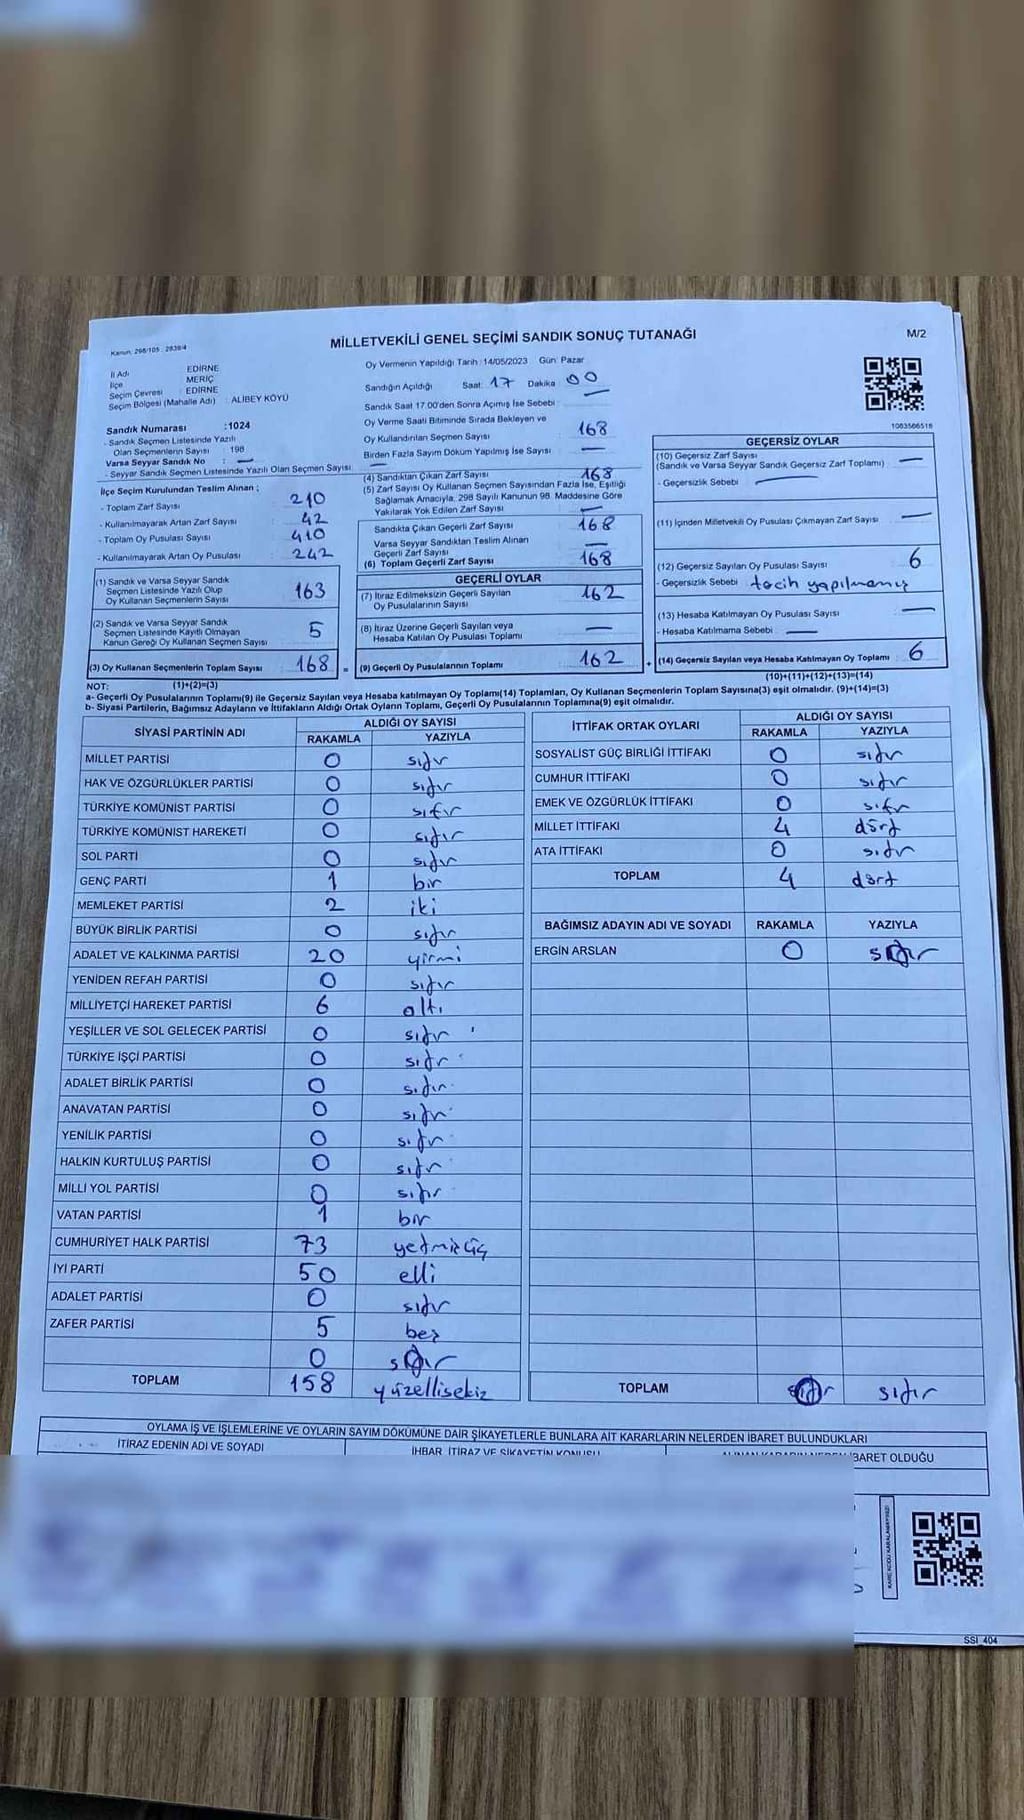 MİLLETVEKİLİ GENEL SEÇİMİ SANDIK SONUÇ TUTANAĞI
M/2
Kanun: 298/105 : 2839/4
İl Adı EDİRNE
İlçe MERİÇ
Seçim Çevresi EDİRNE
Seçim Bölgesi (Mahalle Adı) : ALİBEY KÖYÜ
Oy Vermenin Yapıldığı Tarih :14/05/2023 Gün: Pazar
Sandığın Açıldığı Saat: 17 Dakika 00
Sandık Saat 17.00'den Sonra Açımış İse Sebebi :
Oy Verme Saati Bitiminde Sırada Bekleyen ve
Oy Kullandırılan Seçmen Sayısı 168
Birden Fazla Sayım Döküm Yapılmış İse Sayısı —
1083566516
Sandık Numarası :1024
- Sandık Seçmen Listesinde Yazılı
Olan Seçmenlerin Sayısı : 198
Varsa Seyyar Sandık No : —
- Seyyar Sandık Seçmen Listesinde Yazılı Olan Seçmen Sayısı: —
İlçe Seçim Kurulundan Teslim Alınan ;
- Toplam Zarf Sayısı 210
- Kullanılmayarak Artan Zarf Sayısı 42
- Toplam Oy Pusulası Sayısı 410
- Kullanılmayarak Artan Oy Pusulası 242
(1) Sandık ve Varsa Seyyar Sandık
Seçmen Listesinde Yazılı Olup
Oy Kullanan Seçmenlerin Sayısı 163
(2) Sandık ve Varsa Seyyar Sandık
Seçmen Listesinde Kayıtlı Olmayan
Kanun Gereği Oy Kullanan Seçmen Sayısı 5
(3) Oy Kullanan Seçmenlerin Toplam Sayısı 168 =
(1)+(2)=(3)
(4) Sandıktan Çıkan Zarf Sayısı 168
(5) Zarf Sayısı Oy Kullanan Seçmen Sayısından Fazla İse, Eşitliği
Sağlamak Amacıyla, 298 Sayılı Kanunun 98. Maddesine Göre
Yakılarak Yok Edilen Zarf Sayısı —
Sandıkta Çıkan Geçerli Zarf Sayısı 168
Varsa Seyyar Sandıktan Teslim Alınan
Geçerli Zarf Sayısı —
(6) Toplam Geçerli Zarf Sayısı 168
GEÇERLİ OYLAR
(7) İtiraz Edilmeksizin Geçerli Sayılan
Oy Pusulalarının Sayısı 162
(8) İtiraz Üzerine Geçerli Sayılan veya
Hesaba Katılan Oy Pusulası Toplamı —
(9) Geçerli Oy Pusulalarının Toplamı 162 +
GEÇERSİZ OYLAR
(10) Geçersiz Zarf Sayısı
(Sandık ve Varsa Seyyar Sandık Geçersiz Zarf Toplamı) —
- Geçersizlik Sebebi : —
(11) İçinden Milletvekili Oy Pusulası Çıkmayan Zarf Sayısı —
(12) Geçersiz Sayılan Oy Pusulası Sayısı 6
- Geçersizlik Sebebi tecih yapılmamış
(13) Hesaba Katılmayan Oy Pusulası Sayısı —
- Hesaba Katılmama Sebebi : —
(14) Geçersiz Sayılan veya Hesaba Katılmayan Oy Toplamı 6
(10)+(11)+(12)+(13)=(14)
NOT:
a- Geçerli Oy Pusulalarının Toplamı(9) ile Geçersiz Sayılan veya Hesaba katılmayan Oy Toplamı(14) Toplamları, Oy Kullanan Seçmenlerin Toplam Sayısına(3) eşit olmalıdır. (9)+(14)=(3)
b- Siyasi Partilerin, Bağımsız Adayların ve İttifakların Aldığı Ortak Oyların Toplamı, Geçerli Oy Pusulalarının Toplamına(9) eşit olmalıdır.
SİYASİ PARTİNİN ADI ALDIĞI OY SAYISI
RAKAMLA YAZIYLA
MİLLET PARTİSİ 0 sıfır
HAK VE ÖZGÜRLÜKLER PARTİSİ 0 sıfır
TÜRKİYE KOMÜNİST PARTİSİ 0 sıfır
TÜRKİYE KOMÜNİST HAREKETİ 0 sıfır
SOL PARTİ 0 sıfır
GENÇ PARTİ 1 bir
MEMLEKET PARTİSİ 2 iki
BÜYÜK BİRLİK PARTİSİ 0 sıfır
ADALET VE KALKINMA PARTİSİ 20 yirmi
YENİDEN REFAH PARTİSİ 0 sıfır
MİLLİYETÇİ HAREKET PARTİSİ 6 altı
YEŞİLLER VE SOL GELECEK PARTİSİ 0 sıfır
TÜRKİYE İŞÇİ PARTİSİ 0 sıfır
ADALET BİRLİK PARTİSİ 0 sıfır
ANAVATAN PARTİSİ 0 sıfır
YENİLİK PARTİSİ 0 sıfır
HALKIN KURTULUŞ PARTİSİ 0 sıfır
MİLLİ YOL PARTİSİ 0 sıfır
VATAN PARTİSİ 1 bir
CUMHURİYET HALK PARTİSİ 73 yetmişüç
İYİ PARTİ 50 elli
ADALET PARTİSİ 0 sıfır
ZAFER PARTİSİ 5 beş
0 sıfır
TOPLAM 158 yüzellisekiz
İTTİFAK ORTAK OYLARI ALDIĞI OY SAYISI
RAKAMLA YAZIYLA
SOSYALİST GÜÇ BİRLİĞİ İTTİFAKI 0 sıfır
CUMHUR İTTİFAKI 0 sıfır
EMEK VE ÖZGÜRLÜK İTTİFAKI 0 sıfır
MİLLET İTTİFAKI 4 dört
ATA İTTİFAKI 0 sıfır
TOPLAM 4 dört
BAĞIMSIZ ADAYIN ADI VE SOYADI RAKAMLA YAZIYLA
ERGİN ARSLAN 0 sıfır
TOPLAM sıfır sıfır
OYLAMA İŞ VE İŞLEMLERİNE VE OYLARIN SAYIM DÖKÜMÜNE DAİR ŞİKAYETLERLE BUNLARA AİT KARARLARIN NELERDEN İBARET BULUNDUKLARI
İTİRAZ EDENİN ADI VE SOYADI İHBAR, İTİRAZ VE ŞİKAYETİN KONUSU ALINAN KARARIN NEDEN İBARET OLDUĞU
KARE KODU KARALAMAYINIZ!
SSI_404